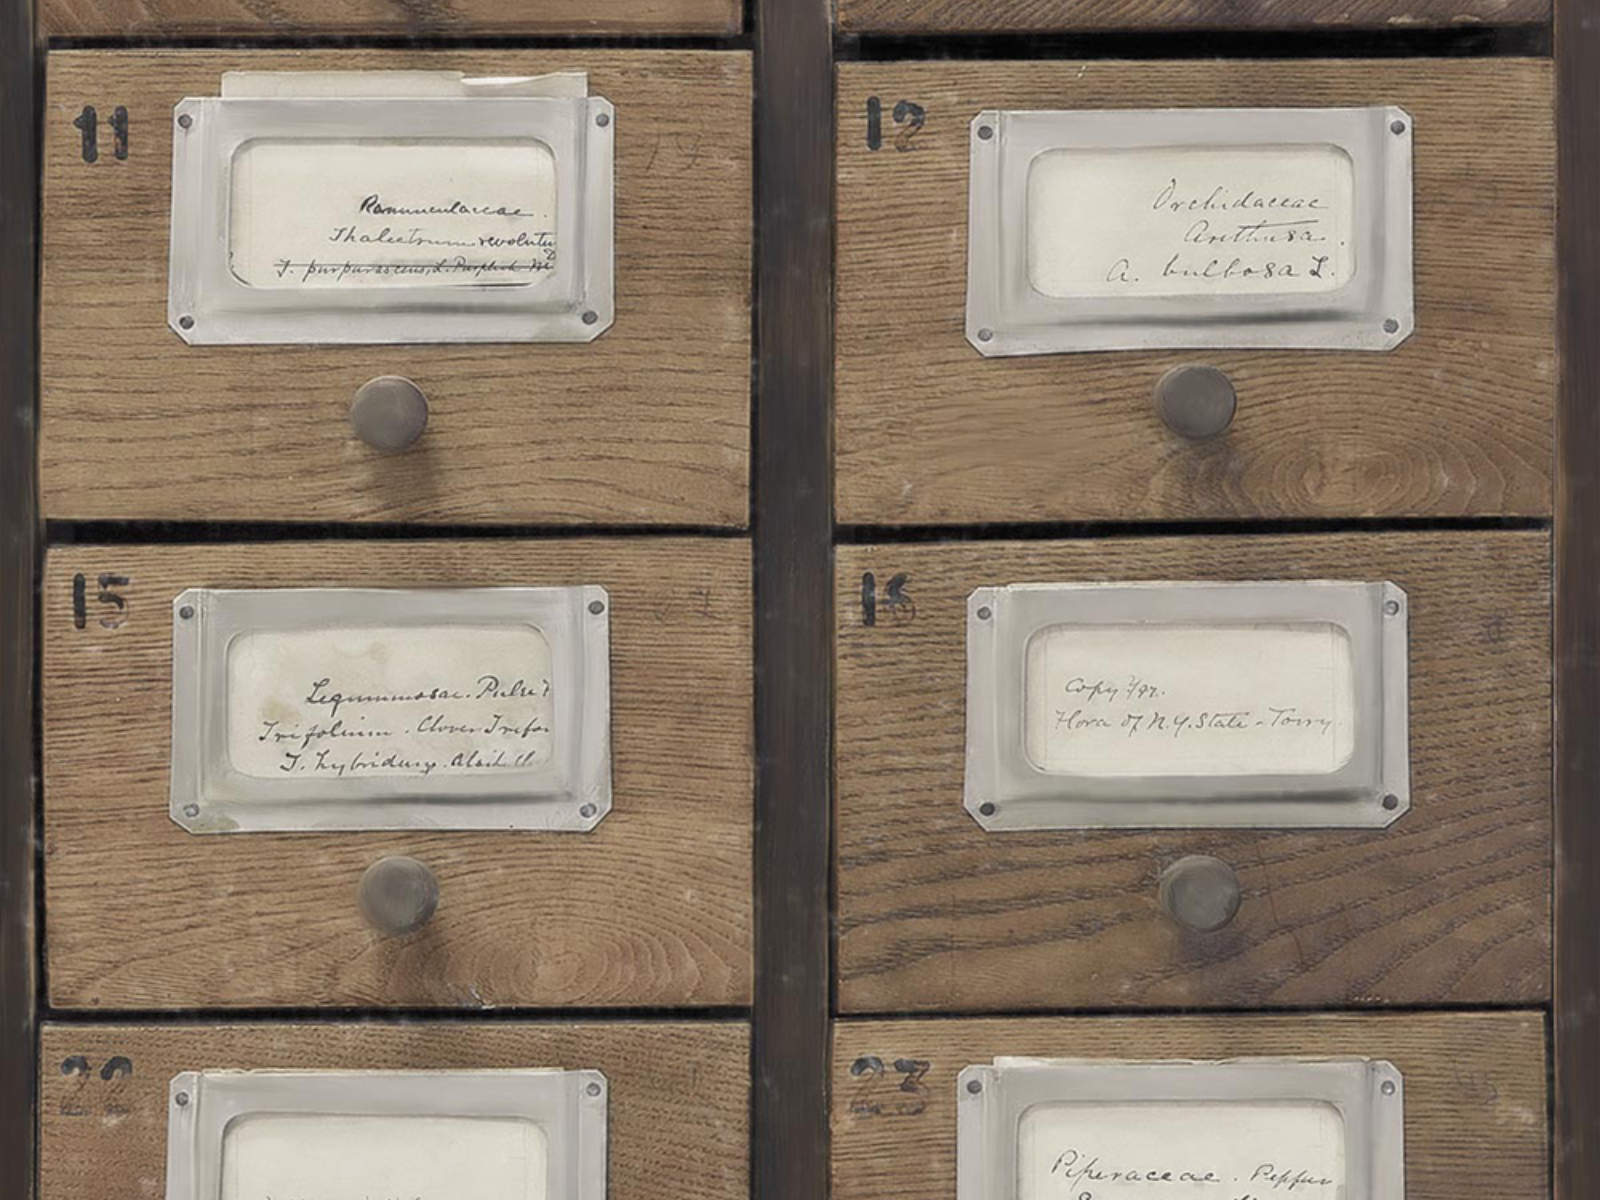 11
Ranunculaceae.
Thalictrum revolutu
T. purpurascens, L. Purplish Me
12
Orchidaceae
Arethusa.
A. bulbosa L.
15
Leguminosae. Pulse
Trifolium. Clover Trefoi
T. hybridum. Alsike Cl
16
Copy
Flora of N.Y. State - Torry.
23
Piperaceae. Pepper